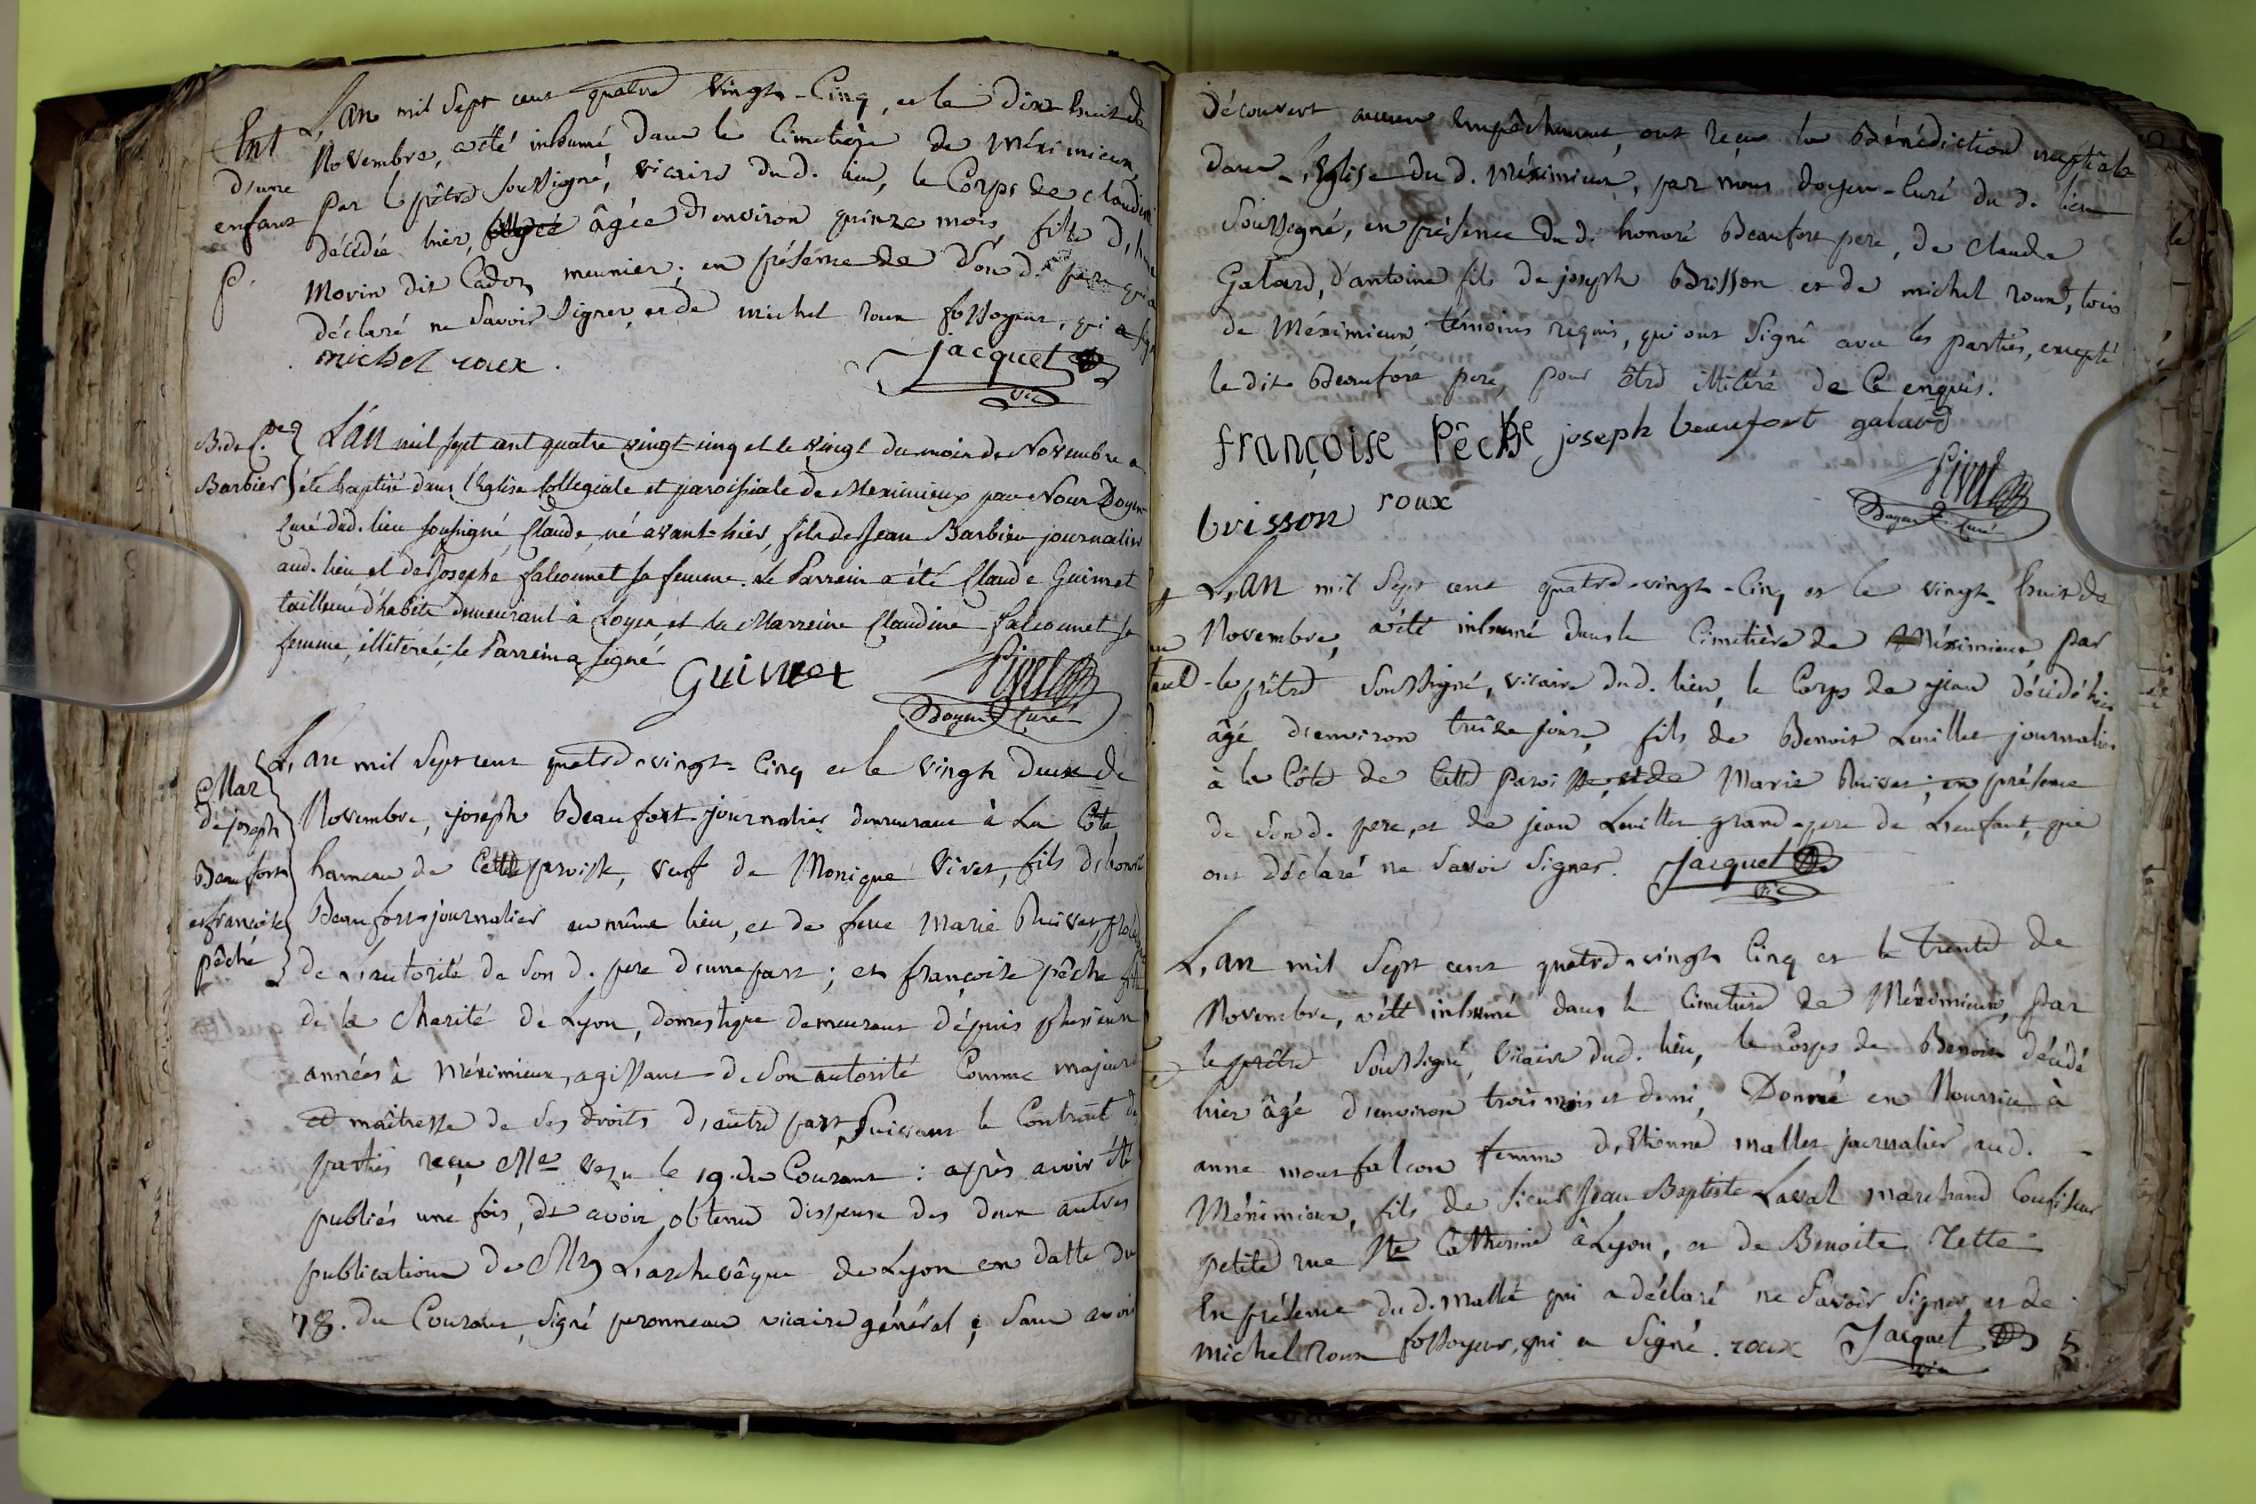 Ent
d'une
enfant
p.
L'an mil sept cent quatre vingt-Cinq, et le dix huit de
Novembre, a été inhumé dans le Cimetière de Méximieux,
par le prêtre soussigné, vicaire dud. lieu, le Corps de claudine
décédée hier, âgée d'environ quinze mois, fille d'
Morin dit Cadoz meunier; en présence de son d. pere qui a
déclaré ne savoir signer, et de michel roux fossoyeur, qui a signé
michel roux. Jacquet
vic
B. de C. de
Barbier
L'an mil sept cent quatre vingt cinq et le vingt du mois de Novembre a
été baptisé dans l'Eglise Collegiale et paroissiale de Meximieux par Nous Doyen
Curé dud. lieu soussigné, Claude, né avant-hier, fils de Jean Barbier journalier
aud. lieu et de Josephe falconnet sa femme. Le Parrein a été Claude Guimet
tailleur d'habits demeurant à Loyes, et la Marreine Claudine falconnet sa
femme, illitérée; le Parrein a signé
Guimet
Doyen Curé
Mar
de joseph
Beaufort
et françoise
pêche
L'an mil sept cent quatre-vingt-Cinq et le vingt deux de
Novembre, joseph Beaufort journalier demeurant à La Côte
hameau de Cette paroisse, veuf de Monique Vivet, fils d'honoré
Beaufort journalier au même lieu, et de feue Marie Buivet,
de L'autorité de son d. pere d'une part; et françoise pêche fille
de la Charité de Lyon, domestique demeurant dépuis plusieurs
années à Méximieux, agissant de son autorité Comme majeure
et maîtresse de ses droits d'autre part, suivant le Contract de
parties reçu Me vezu le 19. du Courant: après avoir été
publiés une fois, et avoir obtenu dispense des deux autres
publications de Mgr L'archevêque de Lyon en datte du
18. du Courant, signé peronneau vicaire général; sans avoir
découvert aucun empêchement, ont reçu la Bénédiction nuptiale
dans l'Eglise du d. Méximieux, par nous doyen-Curé du d. lieu
soussigné, en présence du d. honoré Beaufort pere, de Claude
Galard, d'antoine fils de joseph Brisson et de michel roux, tous
de Méximieux, témoins requis, qui ont signé avec les parties, excepté
le dit Beaufort pere, pour être illitéré de Ce enquis.
françoise Pêche joseph beaufort galard
brisson roux
Doyen Curé
L'an mil sept cent quatre-vingt-Cinq et le vingt-huit de
Novembre, a été inhumé dans le Cimetière de Méximieux par
le prêtre soussigné, vicaire dud. lieu, le Corps de jean décédé hier
âgé d'environ treize jours, fils de Benoit Leuillet journalier
à la Côte de Cette paroisse, et de Marie Buivet; en présence
de son d. pere, et de jean Leuillet grand-pere de L'enfant, qui
ont déclaré ne savoir signer. Jacquet
vic
L'an mil sept cent quatre-vingt Cinq et le trente de
Novembre, a été inhumé dans le Cimetière de Méximieux, par
le prêtre soussigné, vicaire dud. lieu, le Corps de Benoit décédé
hier âgé d'environ trois mois et demi, Donné en Nourrice à
anne montfalcon femme d'Etienne mallet journalier aud.
Méximieux, fils de sieur Jean Baptiste Laval marchand Confiseur
petite rue Ste Catherine à Lyon, et de Benoite Zette
En présence du d. mallet qui a déclaré ne savoir signer, et de
michel Roux fossoyeur, qui a signé. roux Jacquet
vic